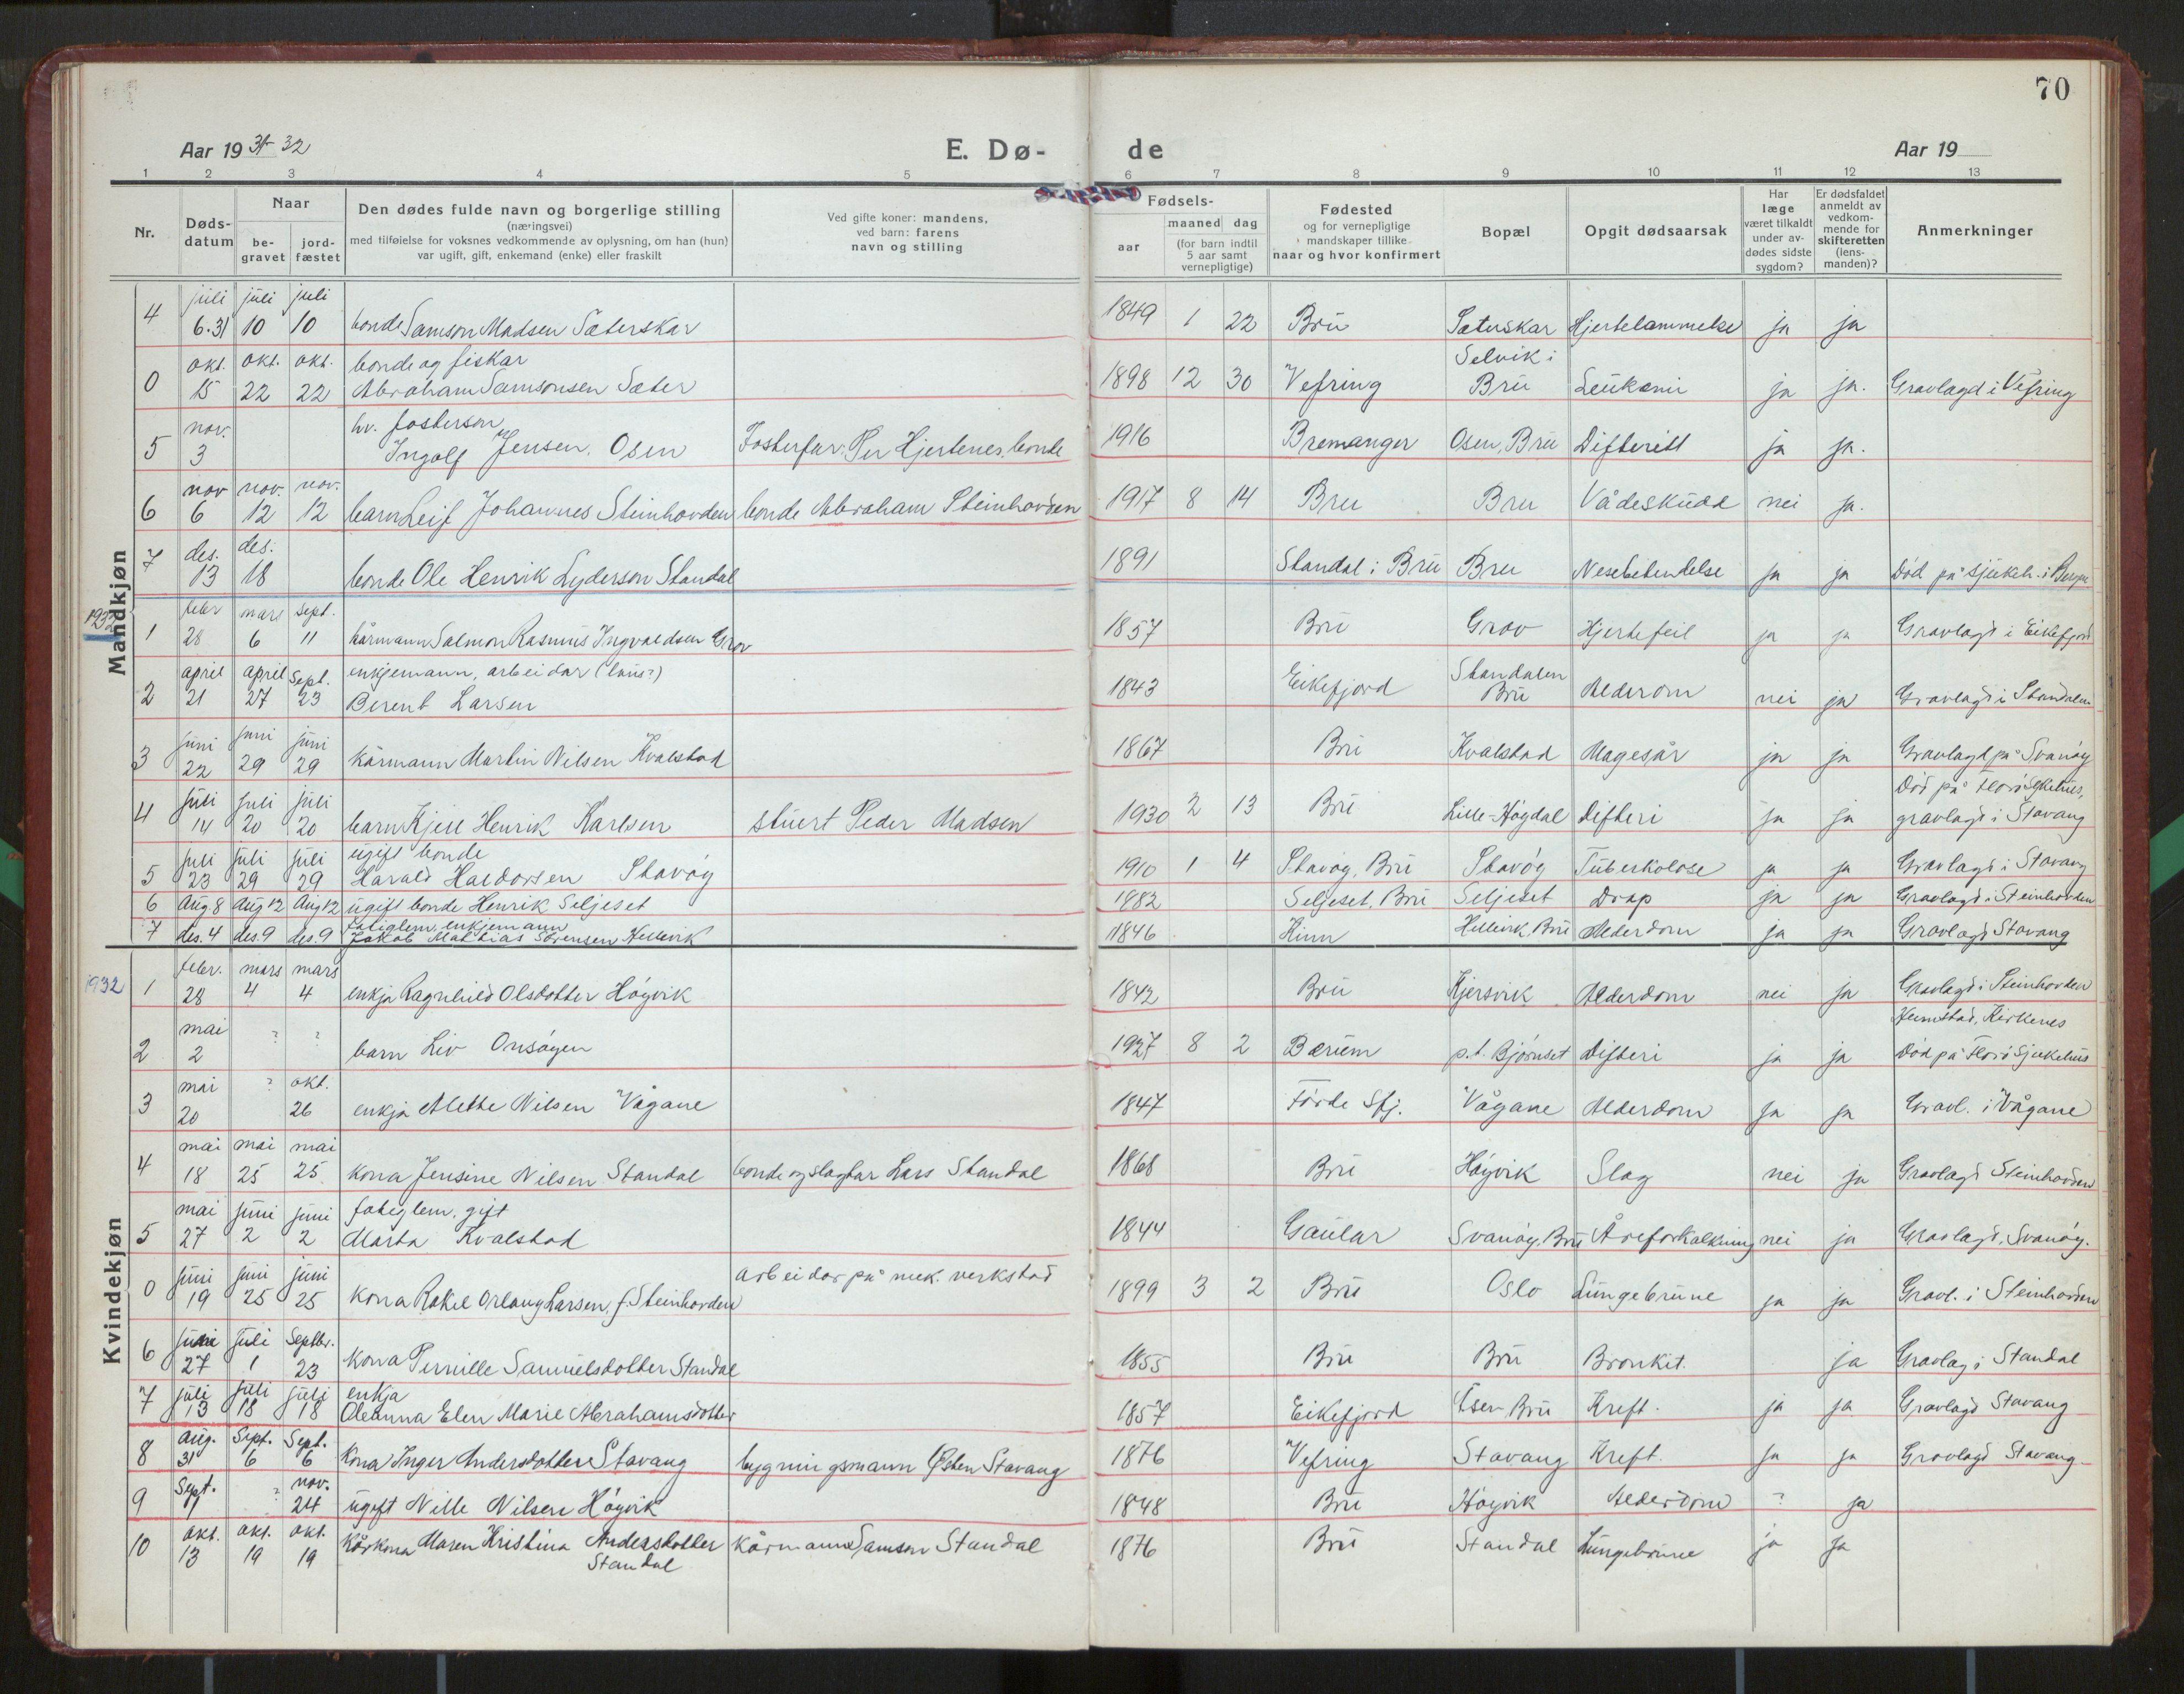 70
Aar 19 31-32 E. Dø- de Aar 19
1 2 3 4 5 6 7 8 9 10 11 12 13
Nr.
Døds-datum
Naar
be-gravet
jord-fæstet
Den dødes fulde navn og borgerlige stilling
(næringsvei)
med tilføielse for voksnes vedkommende av oplysning, om han (hun)
var ugift, gift, enkemand (enke) eller fraskilt
Ved gifte koner: mandens,
ved barn: farens
navn og stilling
Fødsels-
aar
maaned dag
(for barn indtil
5 aar samt
vernepligtige)
Fødested
og for vernepligtige
mandskaper tillike
naar og hvor konfirmert
Bopæl
Opgit dødsaarsak
Har
læge
været tilkaldt
under av-
dødes sidste
sygdom?
Er dødsfaldet
anmeldt av
vedkom-
mende for
skifteretten
(lens-
manden)?
Anmerkninger
Mandkjøn
4 juli 6.31 juli 10 juli 10 bonde Samson Madsen Sæterskar 1849 1 22 Bru Sæterskar Hjertelammelse ja ja
0 okt. 15 okt. 22 okt. 22 bonde og fiskar Abraham Samsonsen Sæter 1898 12 30 Vefring Selvik i Bru Leukemi ja ja. Gravlagd i Vefring
5 nov. 3 hv. fosterson Ingolf Jensen, Osen Fosterfar: Per Hjertenes, bonde 1916 Bremanger Osen, Bru Difteritt ja ja.
6 nov 6 nov. 12 nov. 12 barn Leif Johannes Steinhovden bonde Abraham Steinhovden 1917 8 14 Bru Bru Vådeskudd nei ja.
7 des. 13 des. 18 bonde Ole Henrik Lyderson Standal 1891 Standal i Bru Bru Nesebetendelse ja ja Død på sjukeh. i
1932
1 febr 28 mars 6 sept. 11 kårmann Salmon Rasmus Ingvaldsen Grov 1857 Bru Grov Hjertefeil ja ja Gravlagd i Eikefjord
2 april 21 april 27 sept. 23 enkjemann, arbeidar Berent Larsen 1843 Eikefjord Standalen Bru Alderdom nei ja Gravlagd i Standalen
3 juni 22 juni 29 juni 29 kårmann Martin Nilsen Kvalstad 1867 Bru Kvalstad Magesår ja ja Gravlagd på Svanøy
4 juli 14 juli 20 juli 20 barn Kjell Henrik Karlsen stuert Peder Madsen 1930 2 13 Bru Lille-Høgdal Difteri ja ja Død på Florø Sjukehus, gravlagd i Stavang
5 juli 23 juli 29 juli 29 ugift bonde Harald Haldorsen Stavøy 1910 1 4 Stavøy, Bru Stavøy Tuberkolose ja ja Gravlagd i Stavang
6 Aug 8 Aug 12 Aug 12 ugift bonde Henrik Seljeset 1882 Seljeset, Bru Seljeset Drap ja ja Gravlagd i Steinhovden
7 des. 4 des. 9 des. 9 fatiglem, enkjemann Jakob Mathias Sørensen Hellevik 1846 Kinn Hellevik, Bru Alderdom ja ja Gravlagd Stavang
Kvindekjøn
1932
1 febr. 28 mars 4 mars 4 enkja Ragnhild Olsdotter Høyvik 1842 Bru Kjersvik Alderdom nei ja Gravlagd i Steinhovden
2 mai 2 ? ? barn Liv Onsøyen 1927 8 2 Bærum p.t. Bjørnset Difteri ja ja Heimstad, Kirkenes Død på Florø Sjukehus
3 mai 20 ? okt. 26 enkja Alethe Nilsen Vågane 1847 Førde Sfj. Vågane Alderdom ja ja Gravl. i Vågane
4 mai 18 mai 25 mai 25 kona Jensine Nilsen Standal bonde og slagtar Lars Standal 1868 Bru Høyvik Slag nei ja Gravlagd Steinhovden
5 mai 27 juni 2 juni 2 fatiglem, gift Marta Kvalstad 1844 Gaular Svanøy, Bru Åreforkalkning nei ja Gravlagd, Svanøy.
0 juni 19 juni 25 juni 25 kona Rakel Orlaug Larsen, f. Steinhovden arbeidar på mek. verkstad 1899 3 2 Bru Oslo Lungebrune ja ja Gravl. i Steinhovden
6 juni 27 juli 1 Septbr. 23 kona Pernille Samuelsdotter Standal 1855 Bru Bru Bronkit. ja Gravlag i Standal
7 juli 13 juli 18 juli 18 enkja Oleanna Elen Marie Abrahamsdotter 1857 Eikefjord Osen, Bru Kreft. ja ja Gravlagd Stavang
8 aug. 31 Sept. 6 Sept. 6 kona Inger Andersdotter Stavang bygningsmann Østen Stavang 1876 Vefring Stavang Kreft. ja ja Gravlagd Stavang
9 Sept. ? nov. 24 ugift Nille Nilsen Høyvik 1848 Bru Høyvik Alderdom ? ja
10 okt. 13 okt. 19 okt. 19 Kårkona Maren Kristina Andersdotter Standal kårmann Samson Standal 1876 Bru Standal Lungebrune ja ja